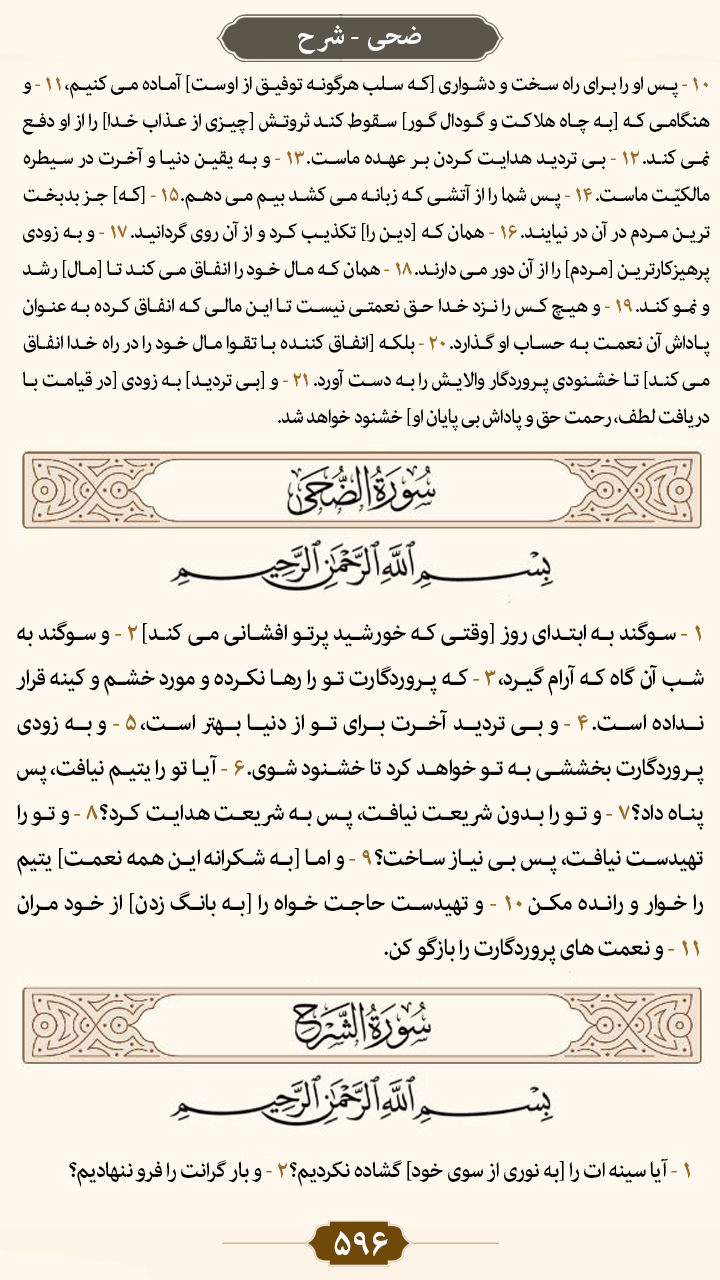 ضحی - شرح
۱۰ - پس او را برای راه سخت و دشواری [که سلب هرگونه توفیق از اوست] آماده می کنیم، ۱۱ - و
هنگامی که [به چاه هلاکت و گودال گور] سقوط کند ثروتش [چیزی از عذاب خدا] را از او دفع
نمی کند. ۱۲ - بی تردید هدایت کردن بر عهده ماست. ۱۳ - و به یقین دنیا و آخرت در سیطره
مالکیّت ماست. ۱۴ - پس شما را از آتشی که زبانه می کشد بیم می دهم. ۱۵ - [که] جز بدبخت
ترین مردم در آن در نیایند. ۱۶ - همان که [دین را] تکذیب کرد و از آن روی گردانید. ۱۷ - و به زودی
پرهیزکارترین [مردم] را از آن دور می دارند. ۱۸ - همان که مال خود را انفاق می کند تا [مال] رشد
و نمو کند. ۱۹ - و هیچ کس را نزد خدا حق نعمتی نیست تا این مالی که انفاق کرده به عنوان
پاداش آن نعمت به حساب او گذارد. ۲۰ - بلکه [انفاق کننده با تقوا مال خود را در راه خدا انفاق
می کند] تا خشنودی پروردگار والایش را به دست آورد. ۲۱ - و [بی تردید] به زودی [در قیامت با
دریافت لطف، رحمت حق و پاداش بی پایان او] خشنود خواهد شد.
سُورَةُ الضُّحَىٰ
بِسْمِ اللَّهِ الرَّحْمَٰنِ الرَّحِيمِ
۱ - سوگند به ابتدای روز [وقتی که خورشید پرتو افشانی می کند] ۲ - و سوگند به
شب آن گاه که آرام گیرد، ۳ - که پروردگارت تو را رها نکرده و مورد خشم و کینه قرار
نداده است. ۴ - و بی تردید آخرت برای تو از دنیا بهتر است، ۵ - و به زودی
پروردگارت بخششی به تو خواهد کرد تا خشنود شوی. ۶ - آیا تو را یتیم نیافت، پس
پناه داد؟ ۷ - و تو را بدون شریعت نیافت، پس به شریعت هدایت کرد؟ ۸ - و تو را
تهیدست نیافت، پس بی نیاز ساخت؟ ۹ - و اما [به شکرانه این همه نعمت] یتیم
را خوار و رانده مکن ۱۰ - و تهیدست حاجت خواه را [به بانگ زدن] از خود مران
۱۱ - و نعمت های پروردگارت را بازگو کن.
سُورَةُ الشَّرْحِ
بِسْمِ اللَّهِ الرَّحْمَٰنِ الرَّحِيمِ
۱ - آیا سینه ات را [به نوری از سوی خود] گشاده نکردیم؟ ۲ - و بار گرانت را فرو ننهادیم؟
۵۹۶